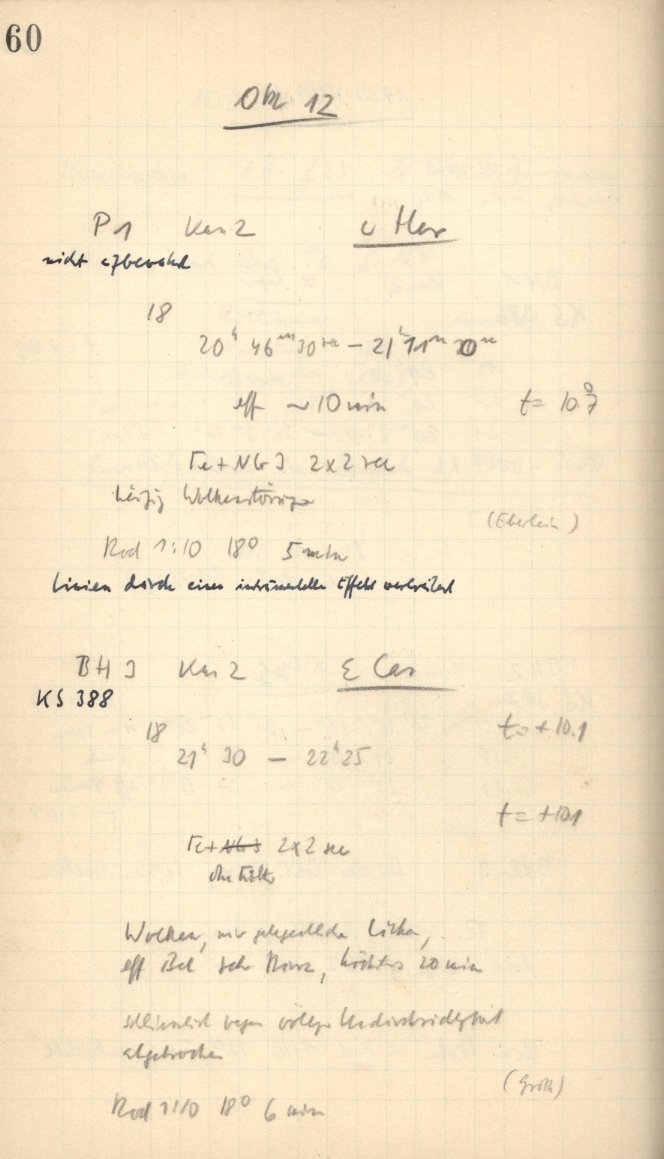 60
Okt 12
P1 Kam 2 υ Her
nicht aufbewahrt
18
20h 46m 30sec – 21h 11m 30s
eff ~10 min t = 10.°7
Fe + NG 3 2x2 sec
häufig Wolkenstörung
(Eberlein)
Rod 1:10 18° 5 min
Linien durch einen instrumentellen Effekt verbreitert
BH 3 Kam 2 ε Cas
KS 388
18 t = +10.1
21h 30 – 22h 25
t = +10.1
Fe + NG 3 2x2 sec
ohne Filter
Wolken, nur gelegentliche Lücken,
eff Bel sehr kurz, höchstens 20 min
schliesslich wegen völliger Undurchsichtigkeit
abgebrochen
(Groth)
Rod 1:10 18° 6 min